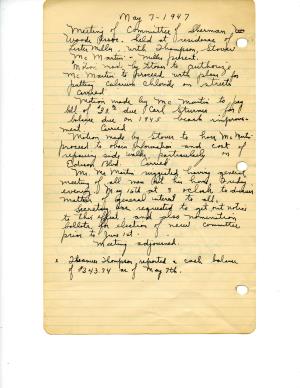 May 7-1947
Meeting of Committee of Sherman
Woods Assoc. held at residence of
Lester Mills, with Thompson, Stover
Mc Martin & Mills present.
Motion made by Stover to authorize
Mc Martin to proceed with plans for
putting calcium chloride on streets
Carried
Motion made by Mc Martin to pay
bill of due Carl
balance due on 1945 beach improve-
ment Carried
Motion made by Stover to have Mc Martin
proceed to obtain information and cost of
repairing side walks, particularly on
Edison Blvd Carried
Mr. Mc Martin requested having general
meeting of all men at his home Friday
evening May 16th at 8 oclock to discuss
matters of general interest to all.
Secretary was requested to get out notices
to this effect, and also nomination
ballots for election of new committee
prior to June 1st.
Meeting adjourned.
x Thompson, reported a cash balance
of $343.34 as of May 7th.